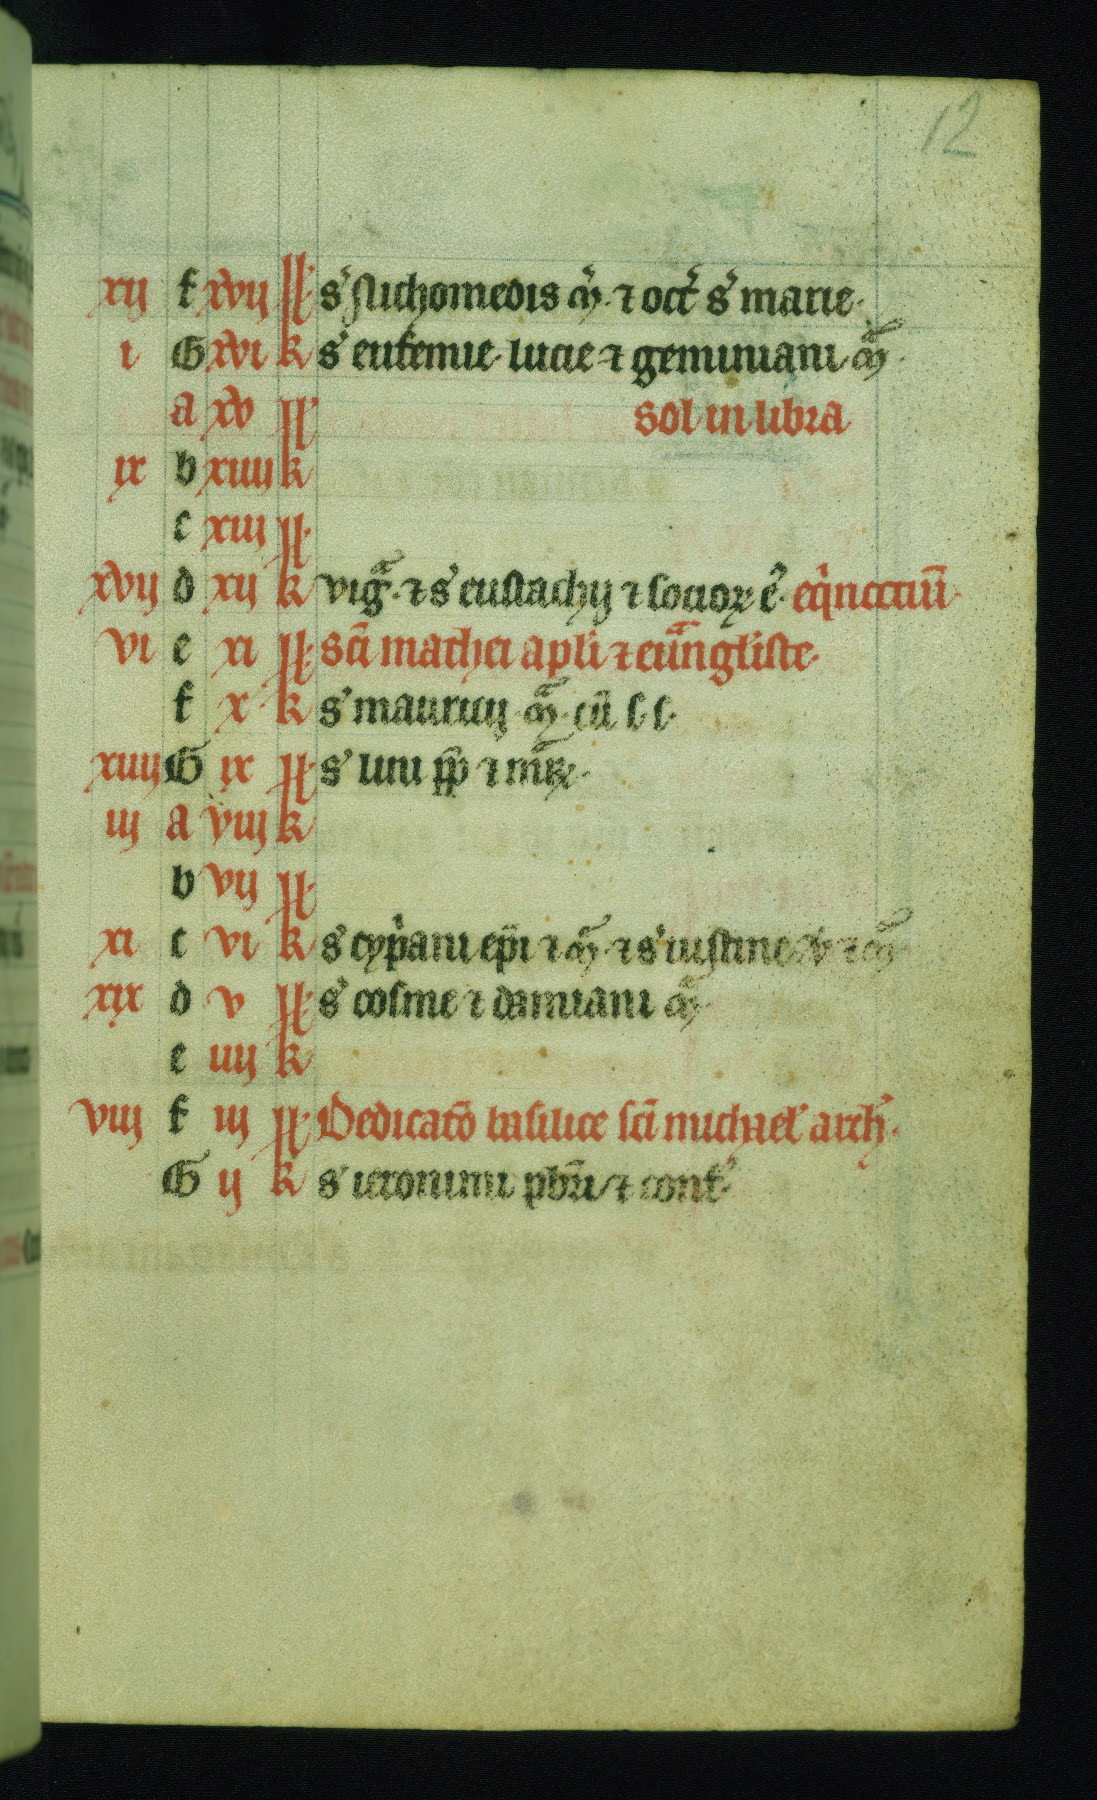 12
xij f xvij kl s' Nichomedis m̄. ⁊ oct̄ s' marie.
i G xvi k s' eufemie. lucie ⁊ geminiani m̄.
a xv kl. sol in libra
ix b xiiij k
c xiij kl.
xvij d xij k vig̃. ⁊ s' eustachij ⁊ socioꝝ ē. eq̇nocciū.
vi e xi kl sc̄i mathei apl̄i ⁊ euāngl̄iste.
f x k s' mauricij m̄. cū s. s.
xiiij G ix kl s' lini pp̄ ⁊ mr̄x.
iij a viij k
b vij kl.
xi c vi k s' cyp̄ani ep̄i ⁊ m̄. ⁊ s' iustine v̄ ⁊ m̄.
xix d v kl. s' cosme ⁊ damiani m̄.
e iiij k
viij f iij kl. Dedicatō basilice sc̄i michael' arch̄.
G ij k s' ieronimi pb̄ri ⁊ conf'